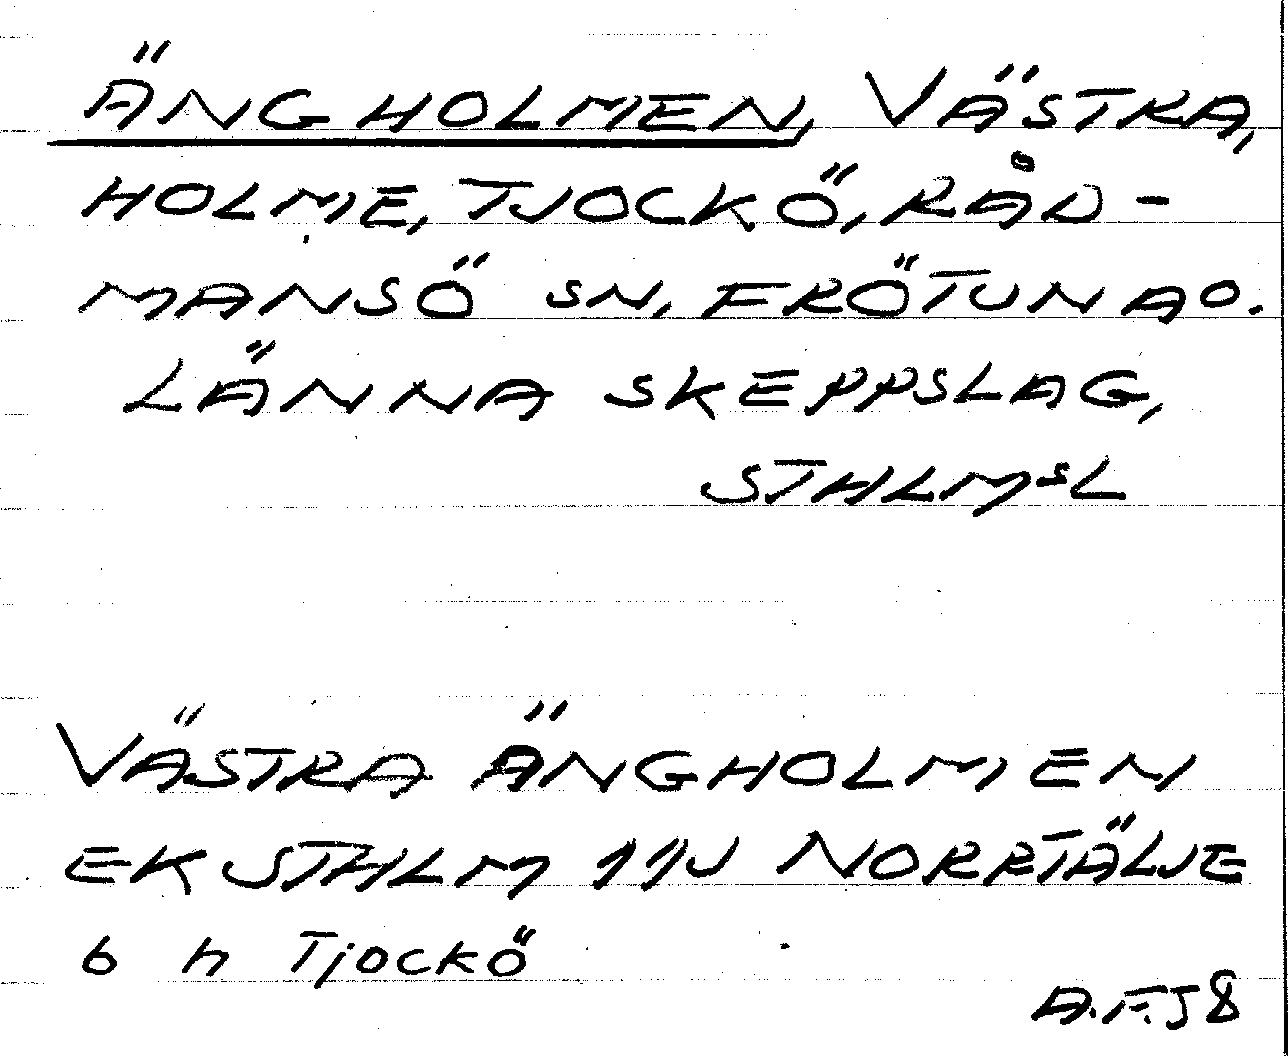 ÄNGHOLMEN, VÄSTRA,
HOLME, TJOCKÖ, RÅD-
MANSÖ SN, FRÖTUNA O.
LÄNNA SKEPPSLAG,
STHLMSL
VÄSTRA ÄNGHOLMEN
EK STHLM 11J NORRTÄLJE
6 h Tjockö
A.F.J 8